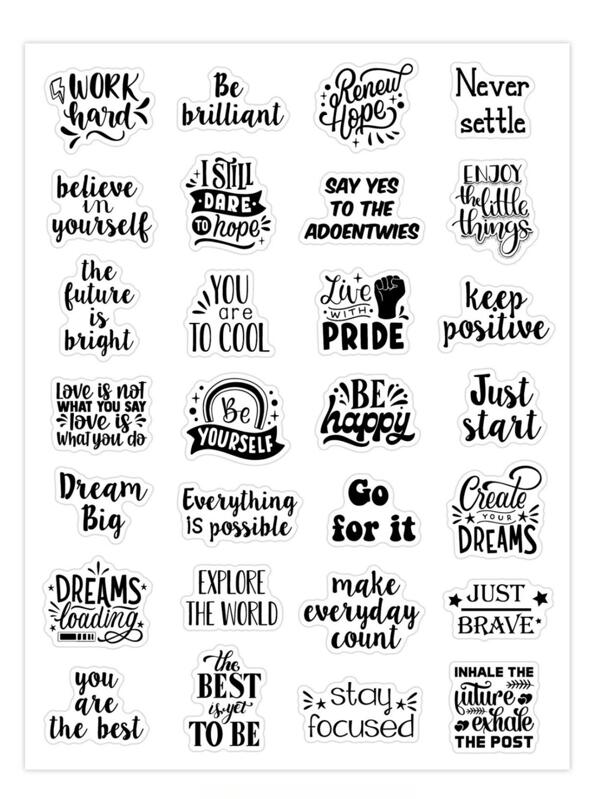 WORK
hard
Be
brilliant
Renew
Hope
Never
settle
believe
in
yourself
I STILL
DARE
TO hope
SAY YES
TO THE
ADOENTWIES
ENJOY
the little
things
the
future
is
bright
YOU
are
TO COOL
Live
WITH
PRIDE
keep
positive
Love is not
WHAT YOU SAY
love is
What you do
Be
YOURSELF
BE
happy
Just
start
Dream
Big
Everything
is possible
Go
for it
Create
YOUR
DREAMS
DREAMS
loading
EXPLORE
THE WORLD
make
everyday
count
JUST
BRAVE
you
are
the best
the
BEST
is yet
TO BE
stay
focused
INHALE THE
future
exhale
THE POST